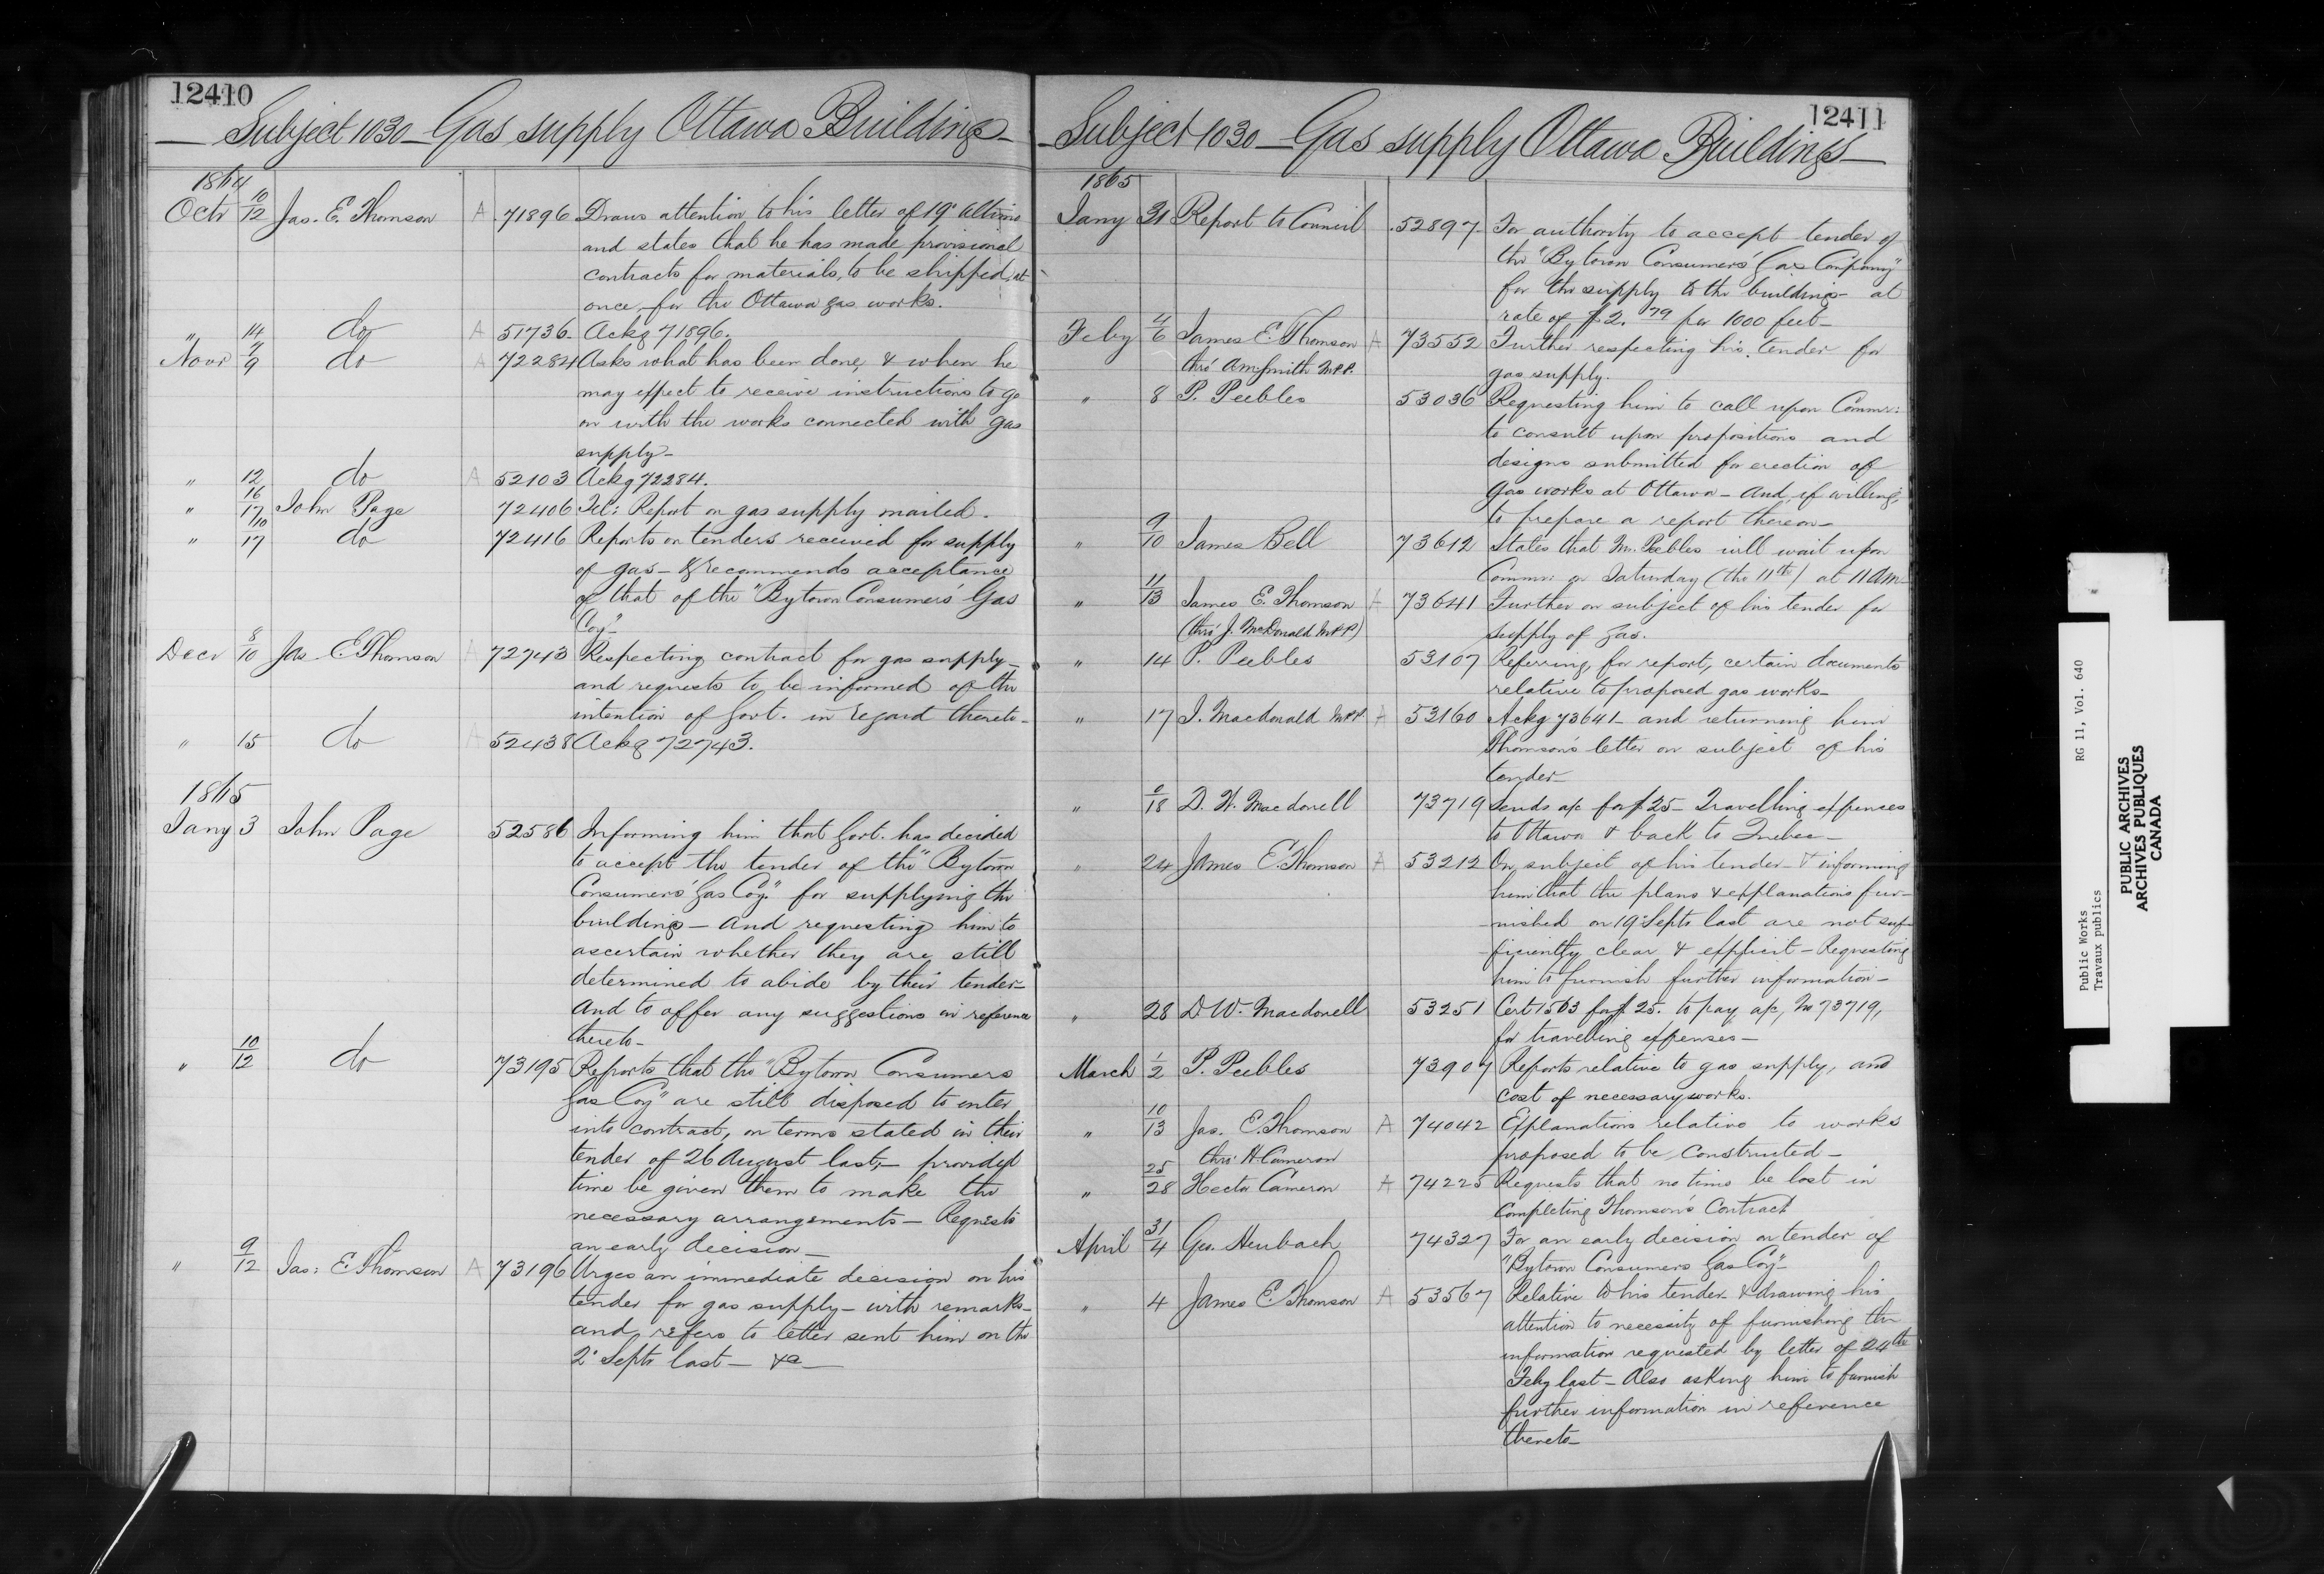 12410
Subject 1030 - Gas supply Ottawa Buildings
1864
Octr 10/12 Jas. E. Thomson A 71896 Draws attention to his letter of 19° ultimo
and states that he has made provisional
contracts for materials, to be shipped, at
once, for the Ottawa gas works.
" 14 do A 51736 Ackg 71896.
Novr 7/9 do A 72284 Asks what has been done, & when he
may expect to receive instructions to go
on with the works connected with gas
supply -
" 12 do A 52103 Ackg 72284.
" 16/17 John Page 72406 Tel: Report on gas supply mailed.
" /17 do 72416 Reports on tenders received for supply
of gas - & recommends acceptance
of that of the "Bytown Consumers' Gas
Coy" -
Decr 8/10 Jas E. Thomson A 72743 Respecting contract for gas supply -
and requests to be informed of the
intention of Govt. in regard thereto -
" 15 do A 52438 Ackg 72743.
1865
Jany 3 John Page 52586 Informing him that Govt. has decided
to accept the tender of the "Bytown
Consumers' Gas Coy." for supplying the
buildings - and requesting him to
ascertain whether they are still
determined to abide by their tender -
and to offer any suggestions in reference
thereto -
" 10/12 do 73195 Reports that the "Bytown Consumers
Gas Coy" are still disposed to enter
into contract, on terms stated in their
tender of 26 August last, - provided
time be given them to make the
necessary arrangements - Requests
an early decision -
" 9/12 Jas: E. Thomson A 73196 Urges an immediate decision on his
tender for gas supply - with remarks -
and refers to letter sent him on the
2° Septr last - &a -
12411
Subject 1030 - Gas supply Ottawa Buildings -
1865
Jany 31 Report to Council 52897 For authority to accept tender of
the "Bytown Consumers' Gas Company"
for the supply to the buildings - at
rate of $2.79 per 1000 feet -
Feby 4/6 James E. Thomson A 73552 Further respecting his tender for
thro' Am. Smith M.P.P. gas supply.
" 8 P. Peebles 53036 Requesting him to call upon Commr:
to consult upon propositions and
designs submitted for erection of
gas works at Ottawa - and, if willing,
to prepare a report thereon -
" 9/10 James Bell 73612 States that Mr. Peebles will wait upon
Commr: on Saturday (the 11th) at 11 am -
" 11/13 James E. Thomson A 73641 Further on subject of his tender for
(thro' J. McDonald M.P.P) supply of gas.
" 14 P. Peebles 53107 Referring, for report, certain documents
relative to proposed gas works -
" 17 J. Macdonald M.P.P. A 53160 Ackg 73641 - and returning him
Thomson's letter on subject of his
tender -
" /18 D. W. Macdonell 73719 Sends a/c for $25 - Travelling expenses
to Ottawa & back to Quebec -
" 24 James E. Thomson A 53212 On subject of his tender - & informing
him that the plans & explanations fur-
-nished on 19° Septr last are not suf-
-ficiently clear & explicit - Requesting
him to furnish further information -
" 28 D. W. Macdonell 53251 Cert 1563 for $25. to pay a/c, No 73719,
for travelling expenses -
March 1/2 P. Peebles 73907 Reports relative to gas supply, and
cost of necessary works.
" 10/13 Jas. E. Thomson A 74042 Explanations relative to works
thro' H. Cameron proposed to be constructed -
" 25/28 Hector Cameron A 74225 Requests that no time be lost in
completing Thomson's Contract
April 31/4 Geo. Heubach 74327 For an early decision on tender of
"Bytown Consumers Gas Coy" -
" 4 James E. Thomson A 53567 Relative to his tender - & drawing his
attention to necessity of furnishing the
information requested by letter of 24th
Feby last - Also asking him to furnish
further information in reference
thereto -
Public Works RG 11, Vol. 640
Travaux publics
PUBLIC ARCHIVES
ARCHIVES PUBLIQUES
CANADA